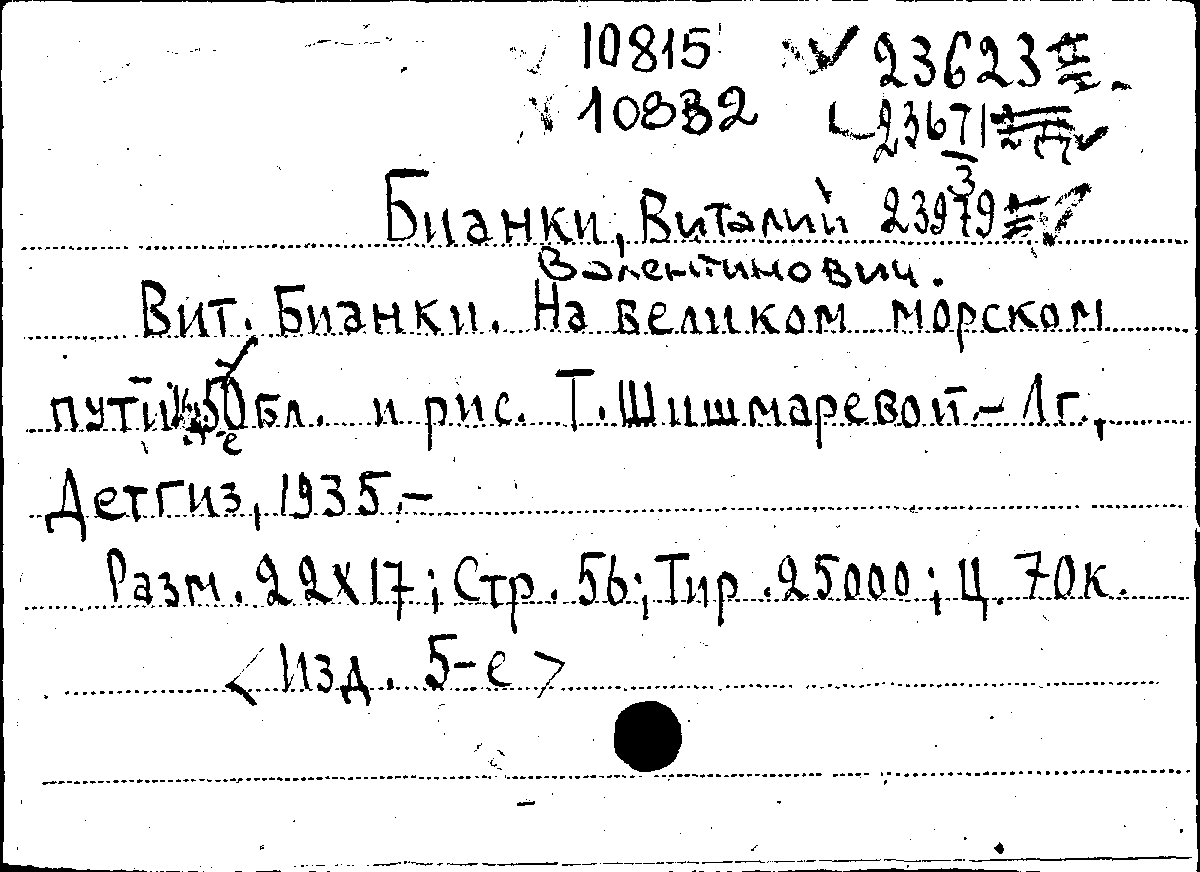 10815 23623
10832 23671
3
Бианки, Виталий 23979
Валентинович.
Вит. Бианки. На великом морском
пути. Обл. и рис. Т. Шишмаревой.- Л г.,
Детгиз, 1935.-
Разм. 22х17; Стр. 56; Тир. 25000; Ц. 70к.
<Изд. 5-е>